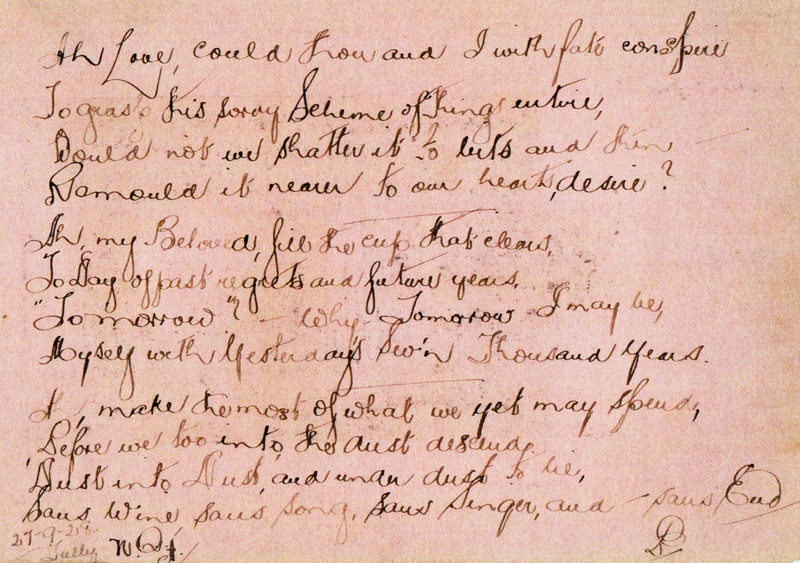 Ah Love, could thou and I with fate conspire
To grasp this sorry Scheme of things entire,
Would not we shatter it to bits and then
Remould it nearer to our hearts, desire?
Ah, my Beloved, fill the cup that clears,
To Day of past regrets and future years,
"Tomorrow"? - Why - Tomorrow I may be,
Myself with Yesterday's Sev'n Thousand Years.
Ah, make the most of what we yet may spend,
Before we too into the dust descend,
Dust into Dust, and under dust to lie,
Sans Wine sans song, sans singer, and - sans End
27-9-